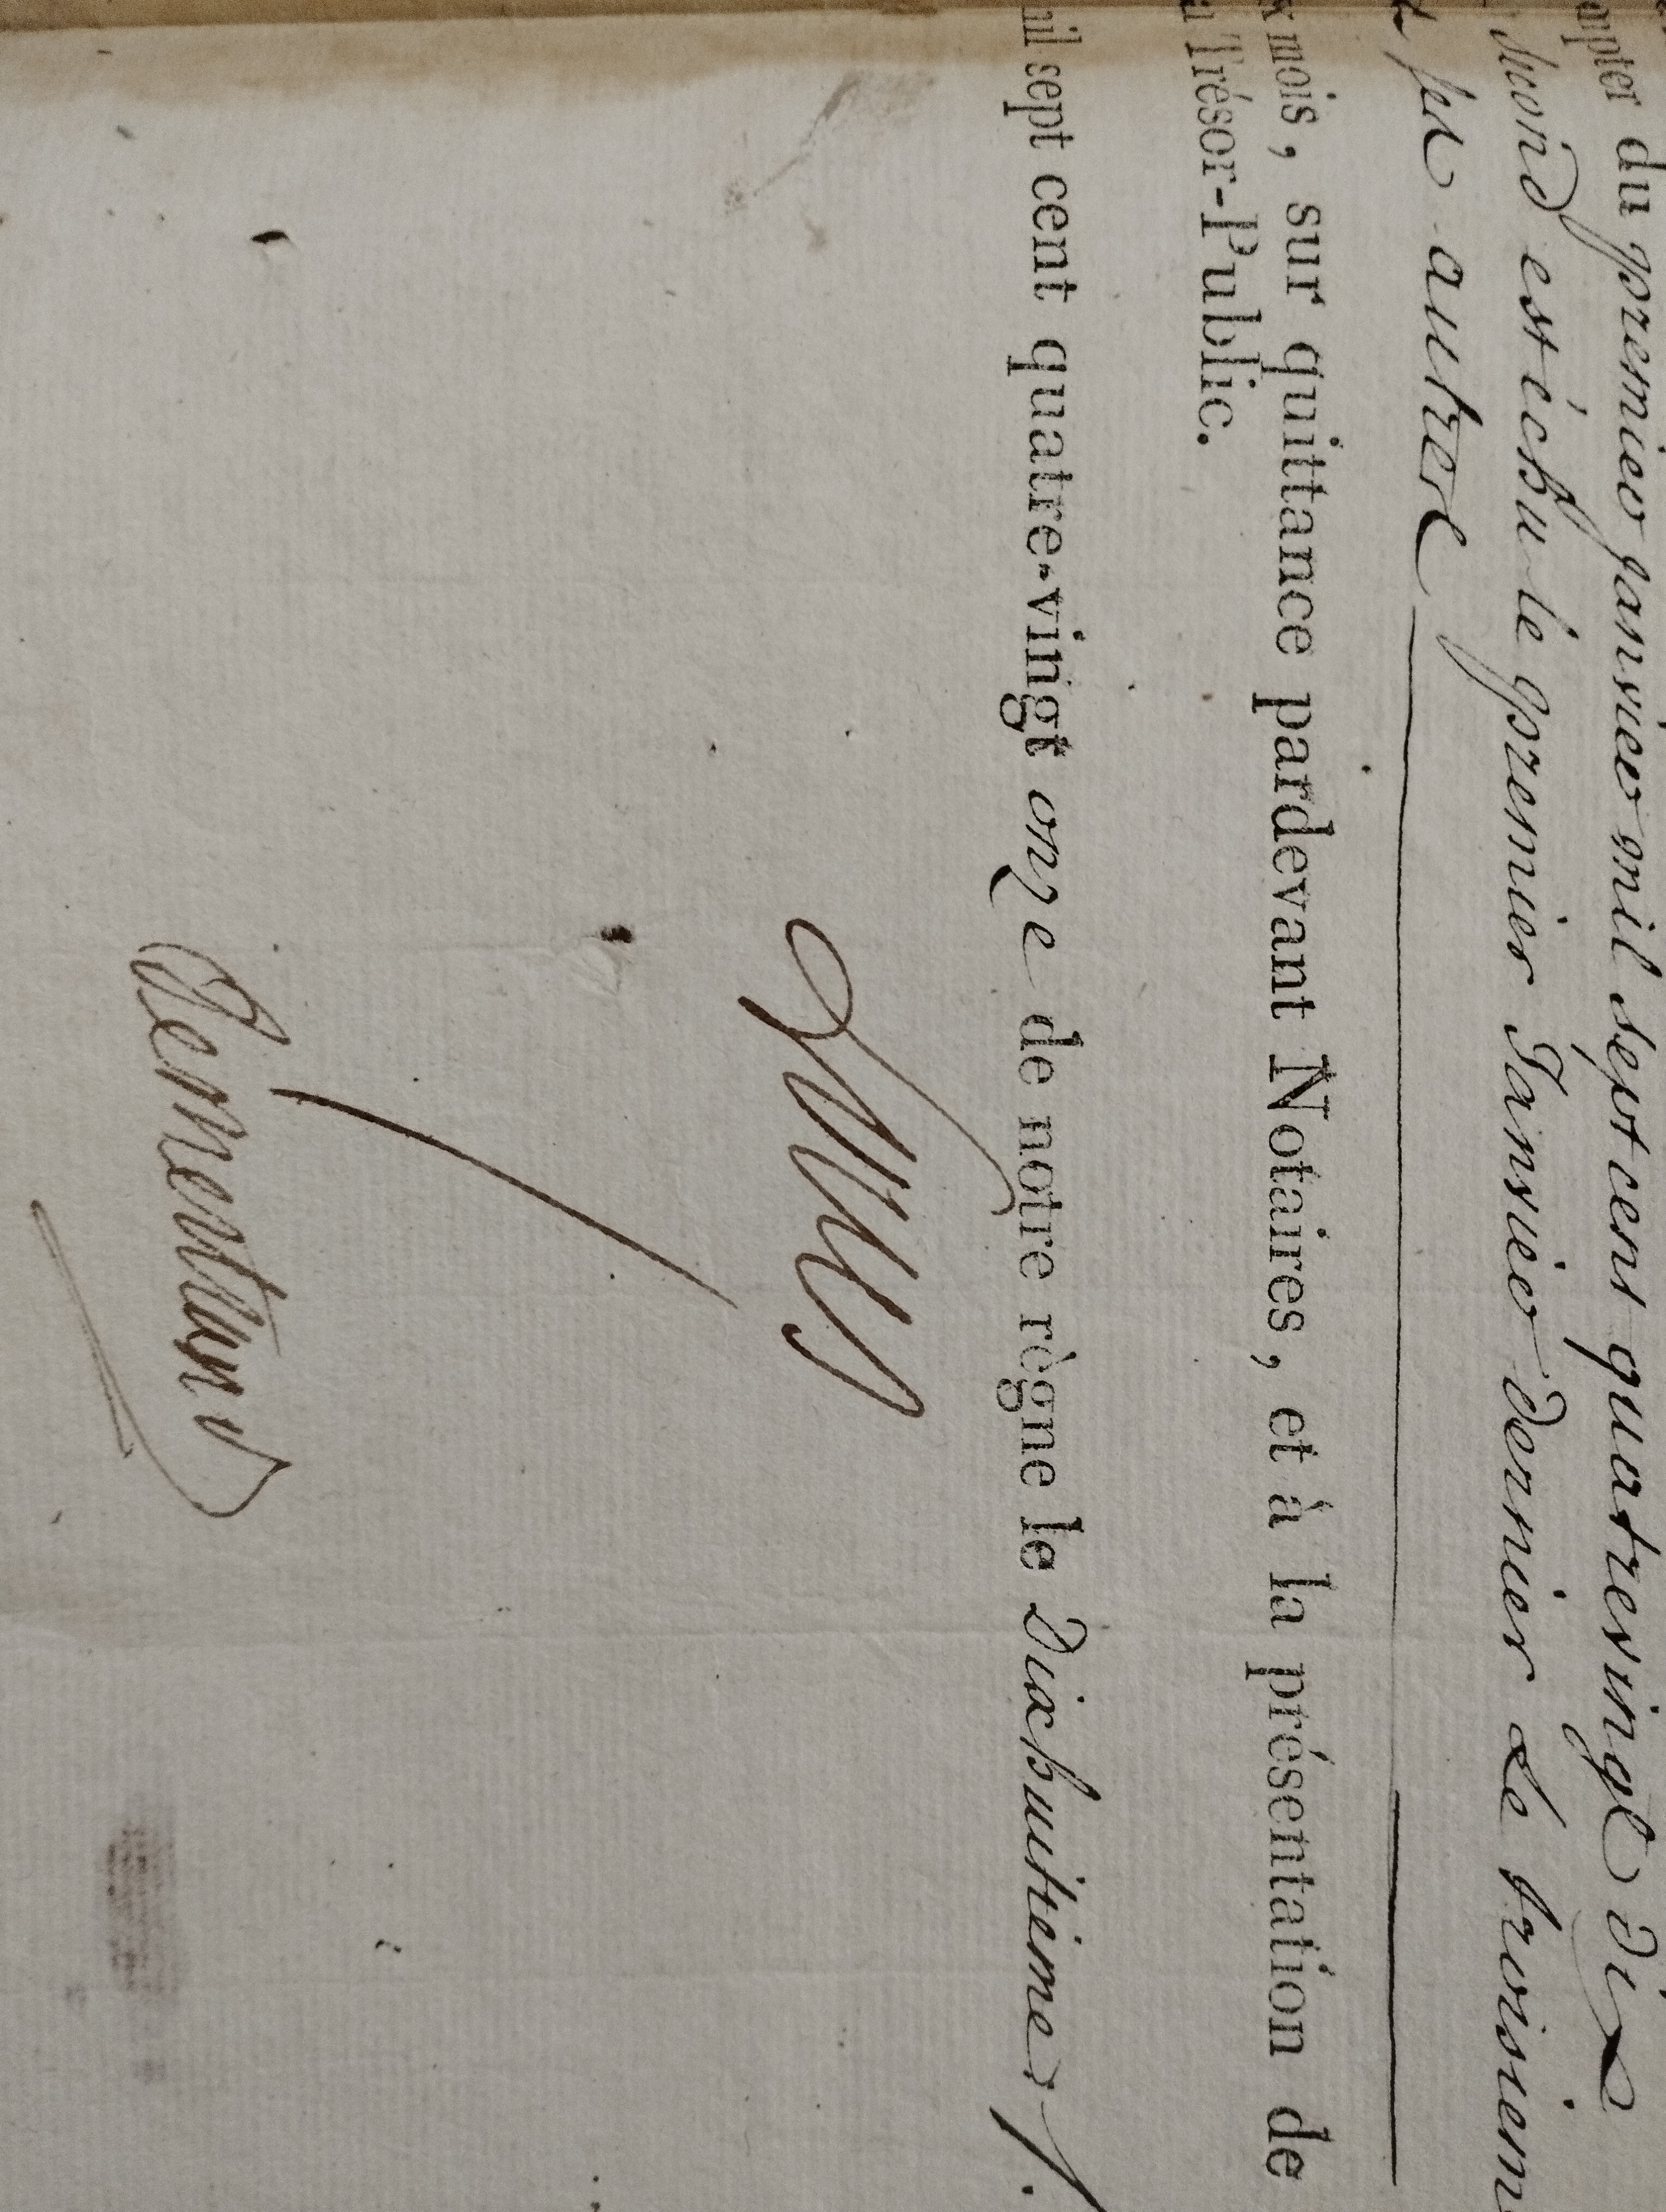 ompter du premier janvier mil sept cent quatrevingt dix
second est échu le premier Janvier dernier Le troisiem
par autre
x mois, sur quittance pardevant Notaires, et à la présentation de
u Trésor-Public.
mil sept cent quatre-vingt onze de notre règne le Dixhuitieme ./.
Louis